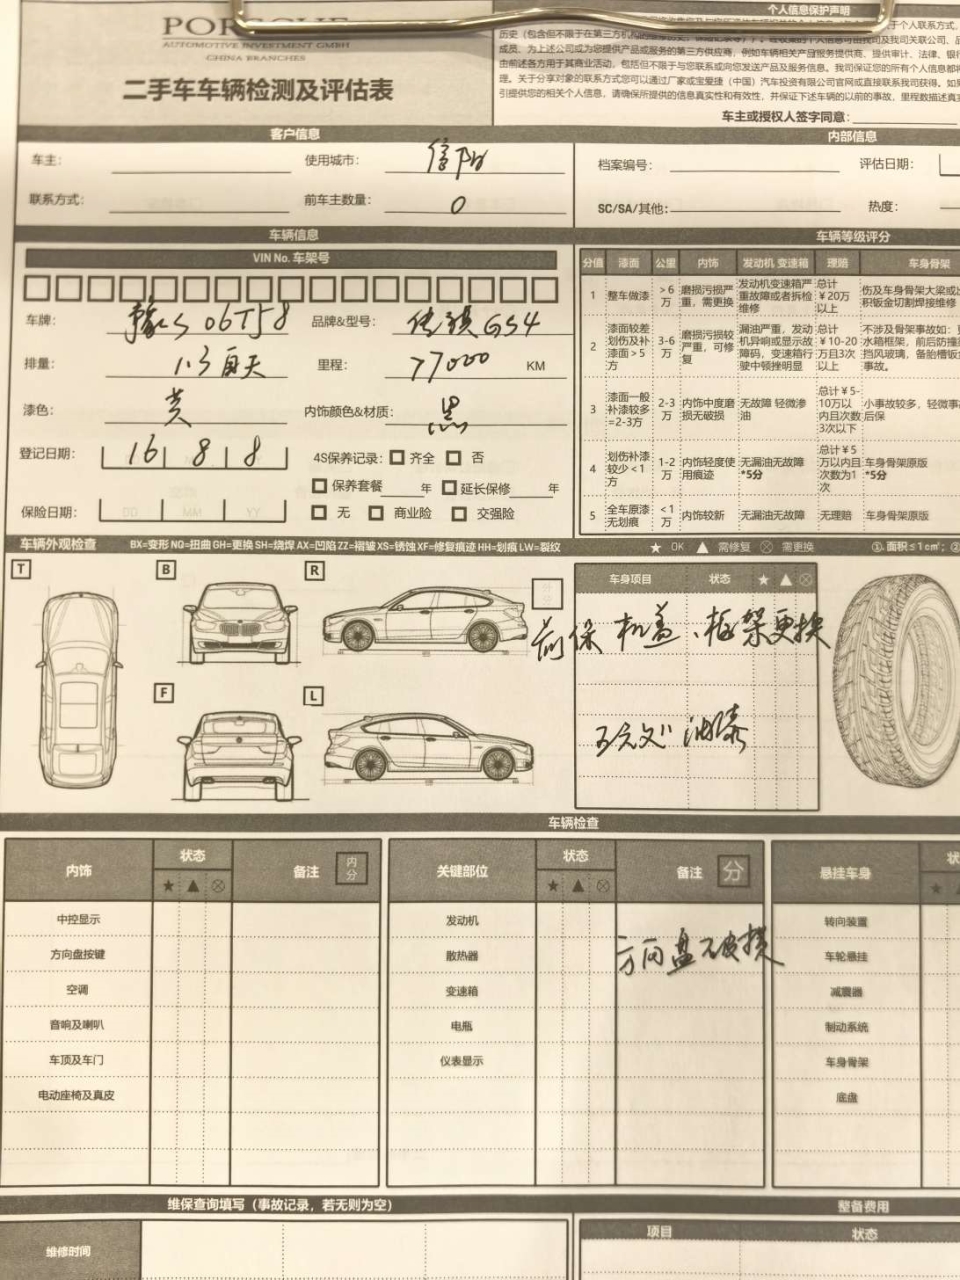 PORSCHE
AUTOMOTIVE INVESTMENT GMBH
CHINA BRANCHES
二手车车辆检测及评估表
个人信息保护声明
成员、为上述公司或为您提供产品或服务的第三方供应商，例如车辆相关产品服务提供商、提供审计、法律、银行
由前述各方用于其商业活动，包括但不限于与您联系或向您发送产品及服务信息。我司保证您的所有个人信息都将
理。关于分享对象的联系方式您可以通过厂家或宝爱捷（中国）汽车投资有限公司官网或直接联系我司获得。如果
引提供您的相关个人信息，请确保所提供的信息真实性和有效性，并保证下述车辆的以前的事故，里程数描述真实
车主或授权人签字同意：
客户信息
内部信息
车主：
使用城市： 信阳
档案编号：
评估日期：
联系方式：
前车主数量： 0
SC/SA/其他：
热度：
车辆信息
车辆等级评分
VIN No. 车架号
车牌： 豫S 06T58
品牌&型号： 传祺GS4
排量： 1.3 自天
里程： 77000 KM
漆色： 黄
内饰颜色&材质： 黑
登记日期： 16 8 8
4S保养记录： 齐全 否
保养套餐 年 延长保修 年
保险日期： DD MM YY
无 商业险 交强险
分值 漆面 公里 内饰 发动机 变速箱 理赔 车身骨架
1 整车做漆 >6万 磨损污损严重，需更换 发动机变速箱严重故障或者拆检维修 总计￥20万以上 伤及车身骨架大梁或
积钣金切割焊接维修
2 漆面较差划伤及补漆面>5方 3-6万 磨损污损较严重，可修复 漏油严重，发动机异响或显示故障码，变速箱行驶中顿挫明显 总计￥10-20万且3次以上 不涉及骨架事故如：更
水箱框架，前后防撞
挡风玻璃，备胎槽钣金
事故。
3 漆面一般补漆较多=2-3方 2-3万 内饰中度磨损无破损 无故障 轻微渗油 总计￥5-10万以内且次数3次以下 小事故较多，轻微事
后保
4 划伤补漆较少<1方 1-2万 内饰轻度使用痕迹 无漏油无故障*5分 总计￥5万以内且次数为1次 车身骨架原版*5分
5 全车原漆无划痕 <1万 内饰较新 无漏油无故障 无理赔 车身骨架原版
车辆外观检查 BX=变形 NQ=扭曲 GH=更换 SH=烧焊 AX=凹陷 ZZ=褶皱 XS=锈蚀 XF=修复痕迹 HH=划痕 LW=裂纹
★ OK ▲ 需修复 ⊗ 需更换 ①.面积≤1c㎡；②
T B R F L
车身项目 状态 ★ ▲ ⊗
前保 机盖、框架更换
油漆
车辆检查
内饰 状态 ★ ▲ ⊗ 备注 内分
关键部位 状态 ★ ▲ ⊗ 备注 分
悬挂车身 状 ★
中控显示 发动机 转向装置
方向盘按键 散热器 方向盘 车轮悬挂
空调 变速箱 减震器
音响及喇叭 电瓶 制动系统
车顶及车门 仪表显示 车身骨架
电动座椅及真皮 底盘
维保查询填写（事故记录，若无则为空）
整备费用
维修时间
项目 状态